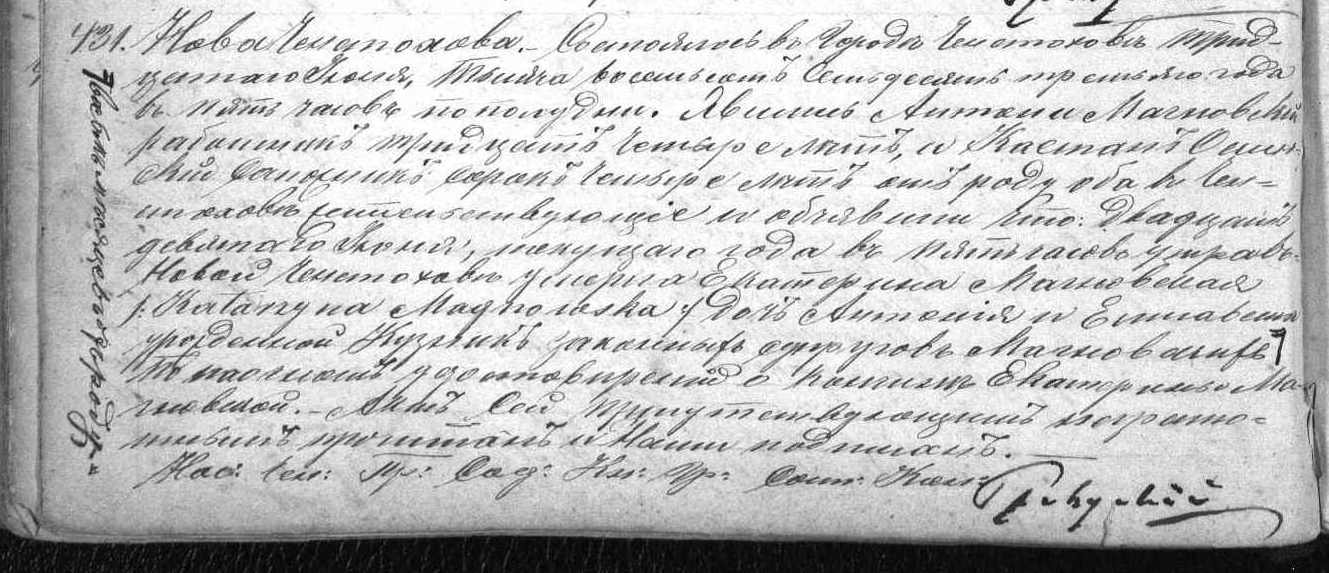 431. Нова Ченстохова. – Состоялось въ Городѣ Ченстоховѣ трид-
цатаго Іюня, тысяча восемьсотъ семьдесятъ третьяго года
въ пять часовъ по полудни. Явились Антони Мачновскій
работникъ тридцать четыре лѣтъ, и Каетанъ
скій сорокъ четыре лѣтъ отъ роду оба въ Чен=
стоховѣ жительствующіе и объявили что: двадцать
девятаго Іюня, текущаго года въ пять часовъ утра въ
Новой Ченстоховѣ умерла Екатерина Мачновская
/: Katarzyna Macnowska :/ дочь Антонія и Елисаветы
урожденной Кузникъ законныхъ супруговъ Мачновскихъ ꓶ
По настоящемъ удостовѣреніи о кончинѣ Екатерины Ма-
чновской. – Актъ сей присутствующимъ неграмо=
тнымъ прочитанъ и Нами подписанъ.
Нас: Чен: Пр: Сод: Кн: Гр: Сост: Ксен:
ꓶ восемь мѣсяцевъ отъ роду.